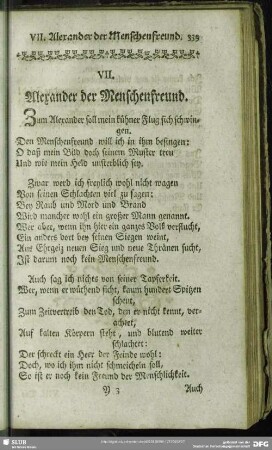 VII. Alexander der Menschenfreund. 339
VII.
Alexander der Menschenfreund.
Zum Alexander soll mein kühner Flug sich schwin-
gen.
Den Menschenfreund will ich in ihm besingen:
O daß mein Bild doch seinem Muster treu
Und wie mein Held unsterblich sey.
Zwar werd ich freylich wohl nicht wagen
Von seinen Schlachten viel zu sagen:
Bey Raub und Mord und Brand
Wird mancher wohl ein großer Mann genannt.
Wer aber, wenn ihn hier ein ganzes Volk verflucht,
Ein anders dort bey seinen Siegen weint,
Aus Ehrgeiz neuen Sieg und neue Thränen sucht,
Ist darum noch kein Menschenfreund.
Auch sag ich nichts von seiner Tapferkeit.
Wer, wenn er wüthend ficht, kaum hundert Spitzen
scheut,
Zum Zeitvertreib den Tod, den er nicht kennt, ver-
achtet,
Auf kalten Körpern steht, und blutend weiter
schlachtet:
Der schreckt ein Heer der Feinde wohl:
Doch, wo ich ihm nicht schmeicheln soll,
So ist er noch kein Freund der Menschlichkeit.
Y 3 Auch
SLUB